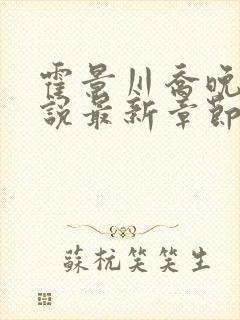 霍景川乔晚
說最新章節
蘇杭笑笑生